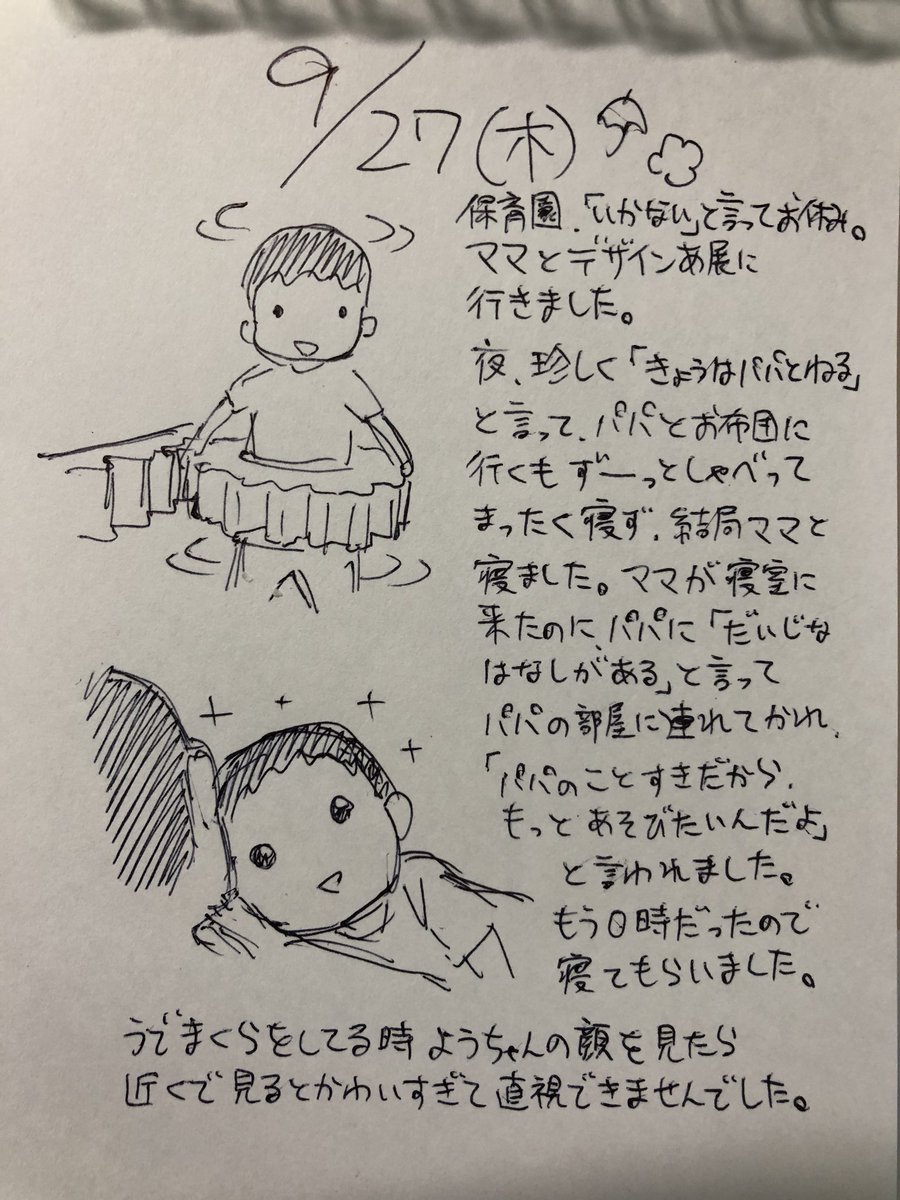 9/27(木)
保育園、「いかない」と言ってお休み。
ママとデザインあ展に
行きました。
夜、珍しく「きょうはパパとねる」
と言って、パパとお布団に
行くもずーっとしゃべって
まったく寝ず、結局ママと
寝ました。ママが寝室に
来たのに、パパに「だいじな
はなしがある」と言って
パパの部屋に連れてかれ、
「パパのことすきだから、
もっとあそびたいんだよ」
と言われました。
もう0時だったので
寝てもらいました。
うでまくらをしてる時ようちゃんの顔を見たら
近くで見るとかわいすぎて直視できませんでした。